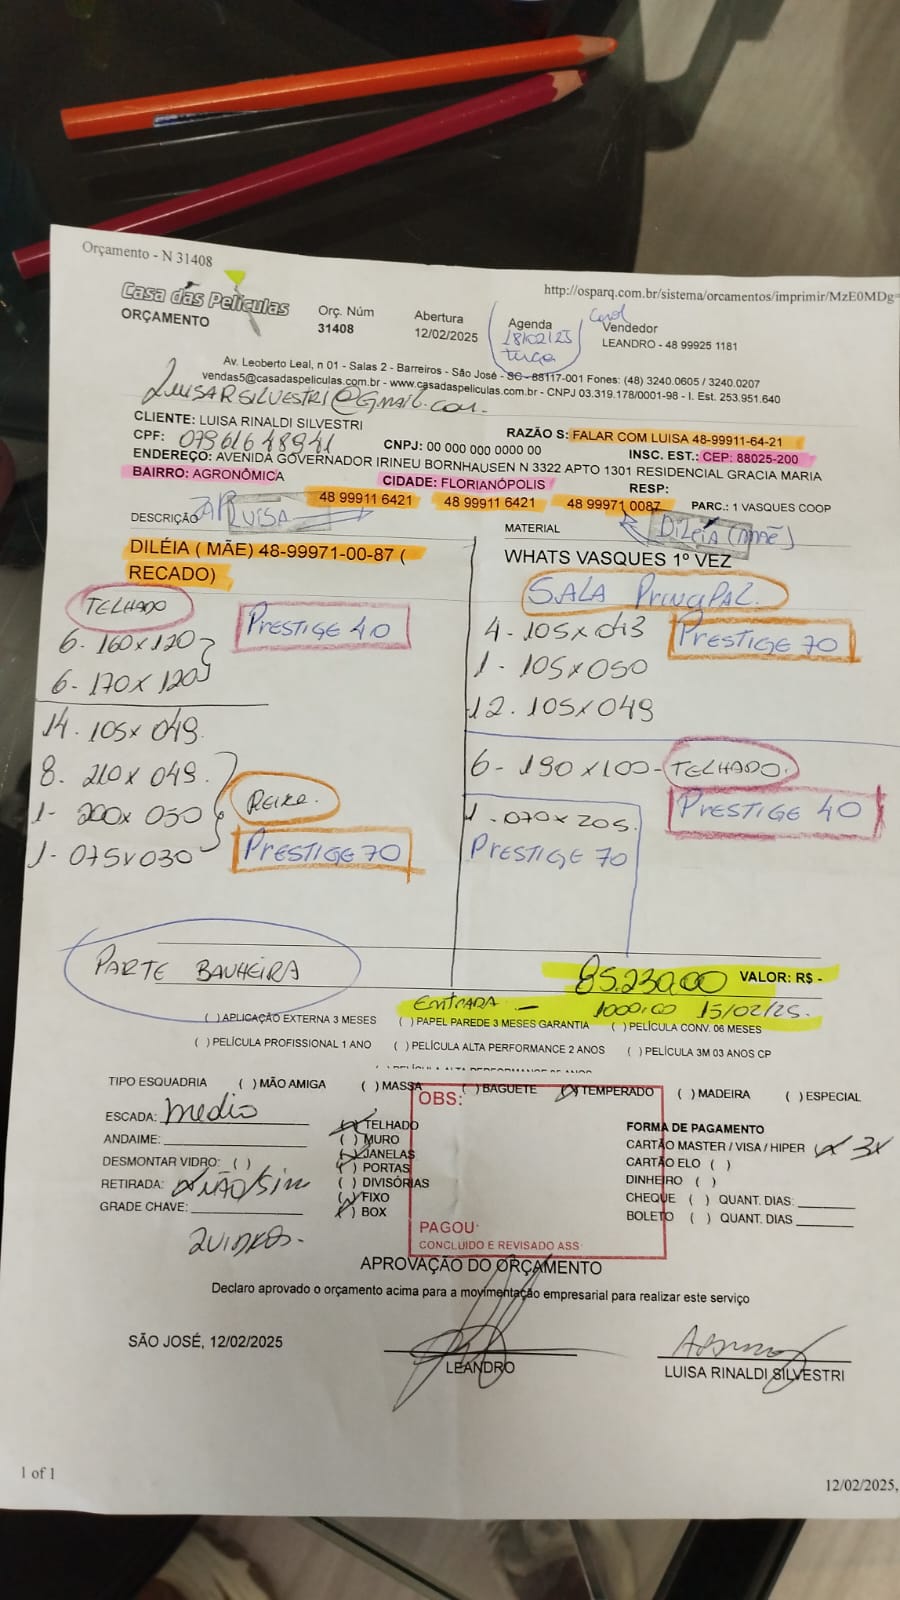 Orçamento - N 31408
http://osparq.com.br/sistema/orcamentos/imprimir/MzE0MDg=
Casa das Películas
ORÇAMENTO
Orç. Núm
31408
Abertura
12/02/2025
Agenda
18/02/25
terça
Carol
Vendedor
LEANDRO - 48 99925 1181
Av. Leoberto Leal, n 01 - Salas 2 - Barreiros - São José - SC - 88117-001 Fones: (48) 3240.0605 / 3240.0207
vendas5@casadaspeliculas.com.br - www.casadaspeliculas.com.br - CNPJ 03.319.178/0001-98 - I. Est. 253.951.640
LUISARSILVESTRI@GMAIL.COM.
CLIENTE: LUISA RINALDI SILVESTRI
RAZÃO S: FALAR COM LUISA 48-99911-64-21
CPF: 07961648941
CNPJ: 00 000 000 0000 00
INSC. EST.: CEP: 88025-200
ENDEREÇO: AVENIDA GOVERNADOR IRINEU BORNHAUSEN N 3322 APTO 1301 RESIDENCIAL GRACIA MARIA
BAIRRO: AGRONÔMICA
CIDADE: FLORIANÓPOLIS
RESP:
48 99911 6421
48 99911 6421
48 99971 0087
PARC.: 1 VASQUES COOP
DESCRIÇÃO
ZAP LUISA
MATERIAL
DILÉIA (MÃE)
DILÉIA ( MÃE) 48-99971-00-87 (
RECADO)
WHATS VASQUES 1º VEZ
TELHADO
PRESTIGE 40
6- 160 x 120
6- 170 x 120
14- 105 x 049.
8. 210 x 049.
1- 200 x 050
1- 075 x 030
PRESTIGE 70
SALA PRINCIPAL.
4- 105 x 043
PRESTIGE 70
1- 105 x 050
12. 105 x 049
6- 190 x 100 - TELHADO.
PRESTIGE 40
1- 070 x 205.
PRESTIGE 70
PARTE BANHEIRA
85.230,00 VALOR: R$ -
ENTRADA - 1000,00 15/02/25.
( ) APLICAÇÃO EXTERNA 3 MESES ( ) PAPEL PAREDE 3 MESES GARANTIA ( ) PELÍCULA CONV. 06 MESES
( ) PELÍCULA PROFISSIONAL 1 ANO ( ) PELÍCULA ALTA PERFORMANCE 2 ANOS ( ) PELÍCULA 3M 03 ANOS CP
TIPO ESQUADRIA ( ) MÃO AMIGA ( ) MASSA ( ) BAGUETE (X) TEMPERADO ( ) MADEIRA ( ) ESPECIAL
ESCADA: Medio
ANDAIME:
DESMONTAR VIDRO: ( )
RETIRADA: (X) NÃO/SIM
GRADE CHAVE:
(X) TELHADO
( ) MURO
(X) JANELAS
(X) PORTAS
( ) DIVISÓRIAS
(X) FIXO
(X) BOX
OBS:
PAGOU:
CONCLUIDO E REVISADO ASS
FORMA DE PAGAMENTO
CARTÃO MASTER / VISA / HIPER (X) 3X
CARTÃO ELO ( )
DINHEIRO ( )
CHEQUE ( ) QUANT. DIAS:
BOLETO ( ) QUANT. DIAS
APROVAÇÃO DO ORÇAMENTO
Declaro aprovado o orçamento acima para a movimentação empresarial para realizar este serviço
SÃO JOSÉ, 12/02/2025
LEANDRO
LUISA RINALDI SILVESTRI
1 of 1
12/02/2025,